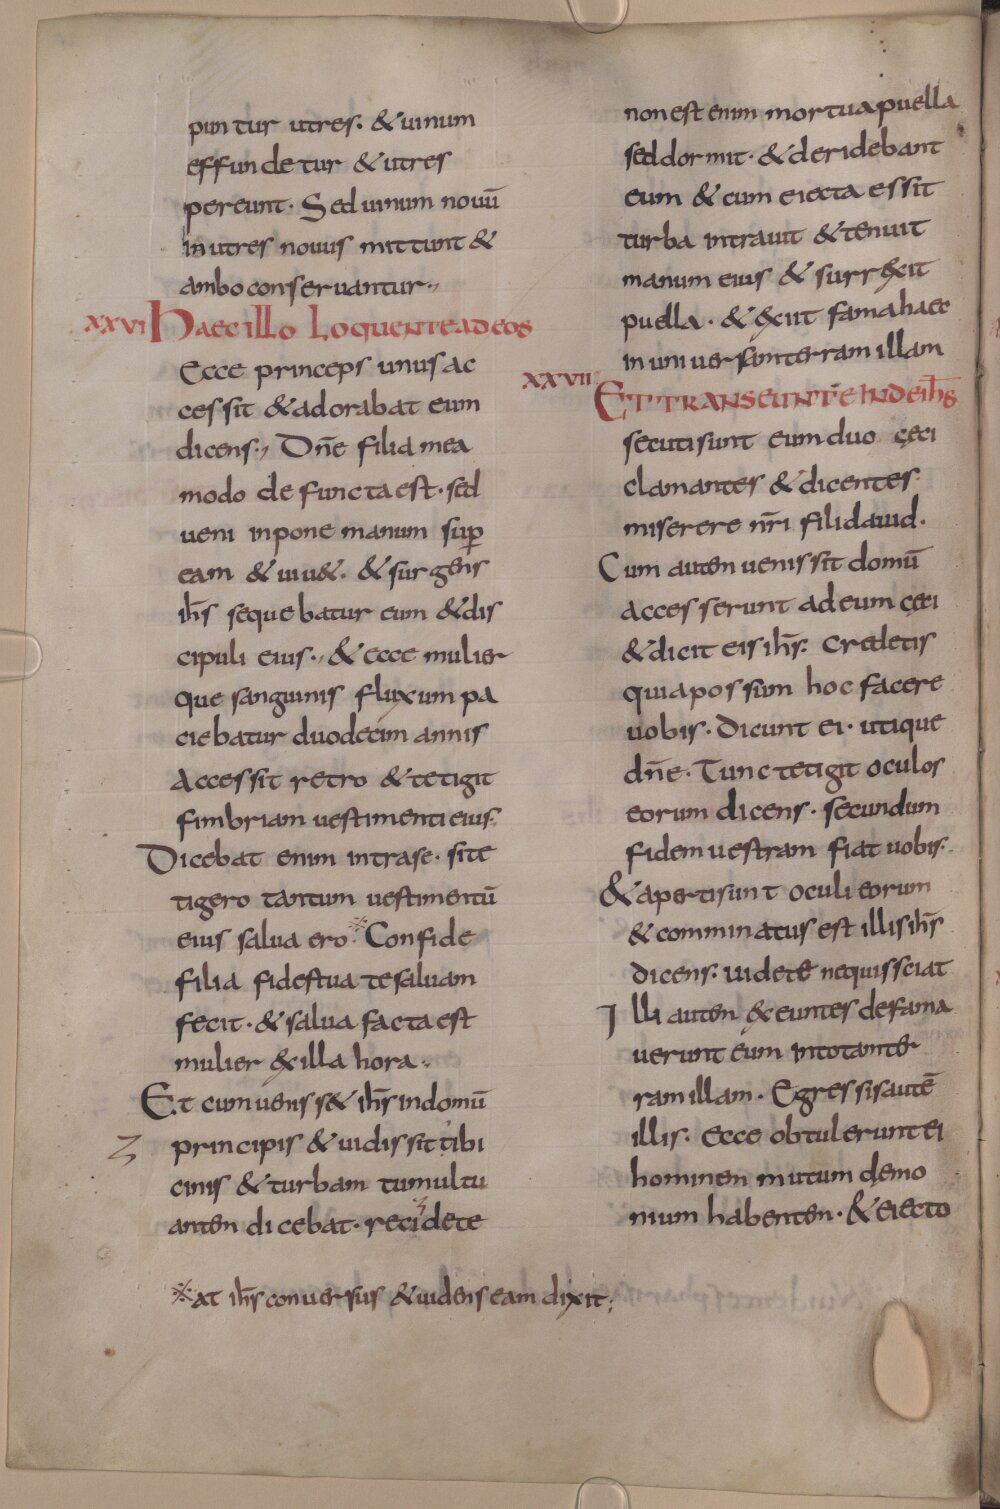 puntur utres. & uinum
effundetur & utres
pereunt. Sed uinum nouū
in utres nouus mittunt &
ambo conseruantur.,
XXVI Haec illo loquente ad eos
Ecce princeps unus ac
cessit & adorabat eum
dicens., Dn̄e filia mea
modo defuncta est. sed
ueni inpone manum suꝑ
eam & uiu&. & surgens
ih̄s sequebatur eum & dis
cipuli eius., & ecce mulier
que sanguinis fluxum pa
ciebatur duodecim annis
Accessit retro & tetigit
fimbriam uestimenti eius.
Dicebat enim intra se. si te
tigero tantum uestimentū
eius salua ero. ※ Confide
filia fides tua te saluam
fecit. & salua facta est
mulier & illa hora.
Et cumueniss& ih̄s in domū
principis & uidissit tibi
cinis & turbam tumultu
anten dicebat. recidete
※ at ih̄s conuersus & uidens eam dixit;
non est enim mortua puella
sed dormit. & deridebant
eum & cum eiecta essit
turba intrauit & tenuit
manum eius & surr&it
puella. & &iit fama haec
in uniuersam terram illam
XXVII ET TRANSEUNTE INDE ih̄s
secuti sunt eum duo cęci
clamantes & dicentes.
miserere nr̄i fili dauid.
Cum auten uenissit domū
accesserunt ad eum cęci
& dicit eis ih̄s. Creditis
quia possum hoc facere
uobis. Dicunt ei. utique
dn̄e. Tunc tetigit oculos
eorum dicens. secundum
fidem uestram fiat uobis.
& aperti sunt oculi eorum
& comminatus est illis ih̄s
dicens. uidete nequis sciat
Illi auten &euntes defama
uerunt eum in tota ter
ram illam. Egressis autē
illis. Ecce obtulerunt ei
hominen mutum dęmo
nium habenten. & eiecto